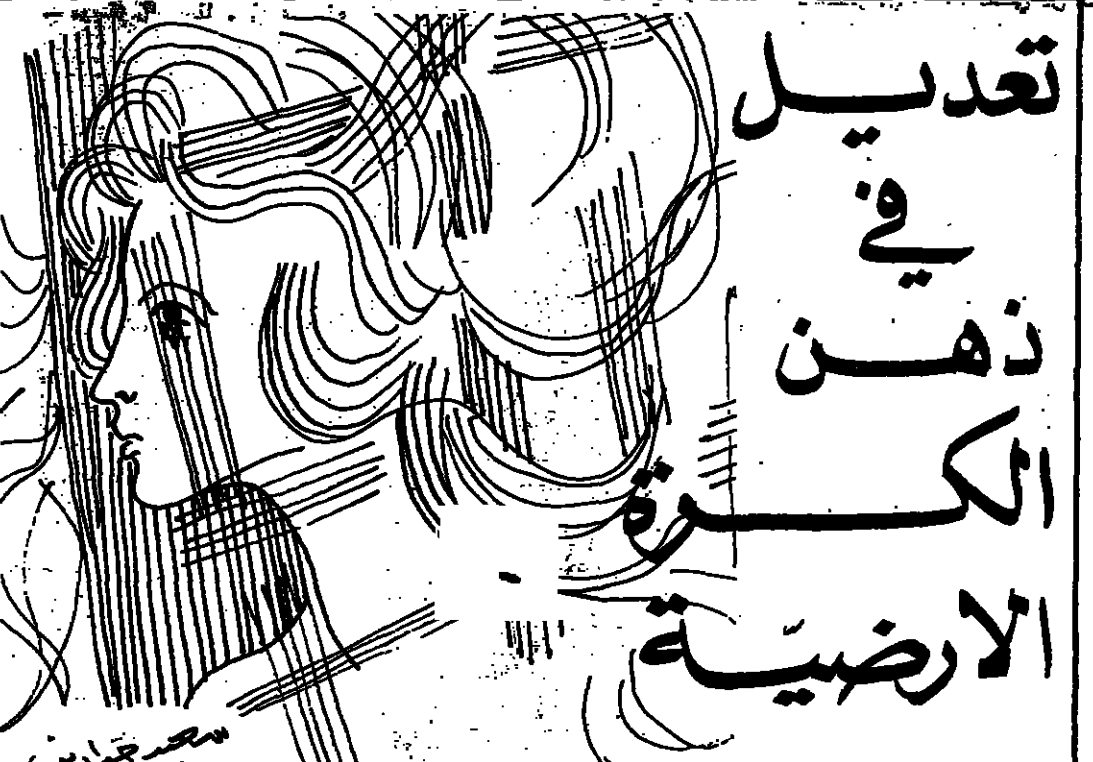 تعديل
في
ذهن
الكرة
الارضية